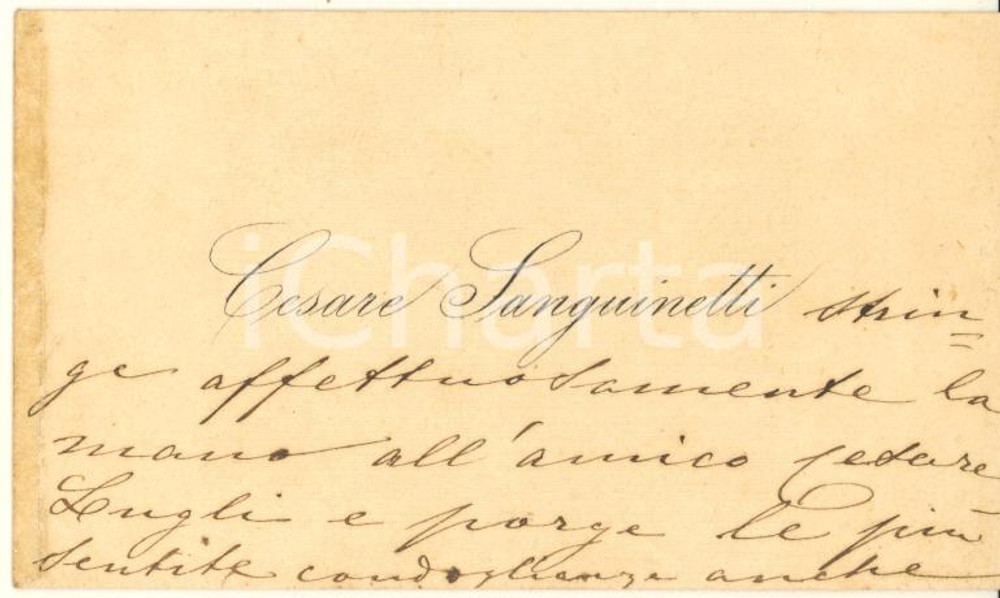 iCharta
Cesare Sanguinetti strin=
ge affettuosamente la
mano all'amico Cesare
Lugli e porge le più
sentite condoglianze anche